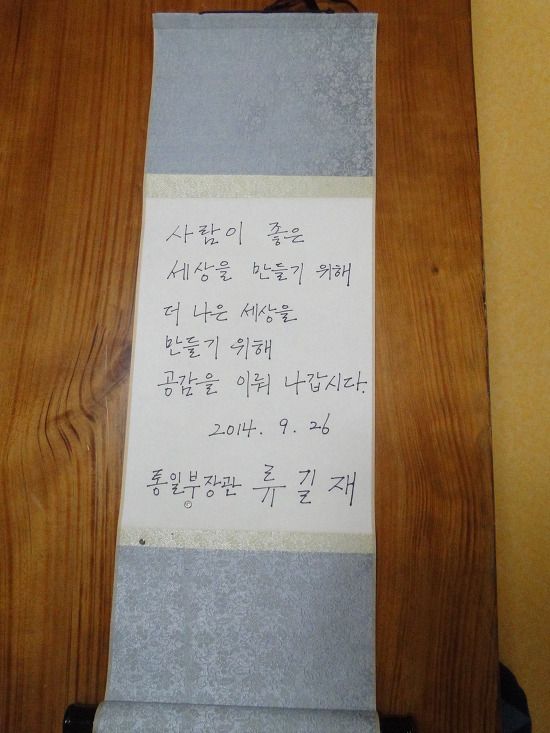 사람이 좋은
세상을 만들기 위해
더 나은 세상을
만들기 위해
공감을 이뤄 나갑시다.
2014. 9. 26
통일부장관 류길재